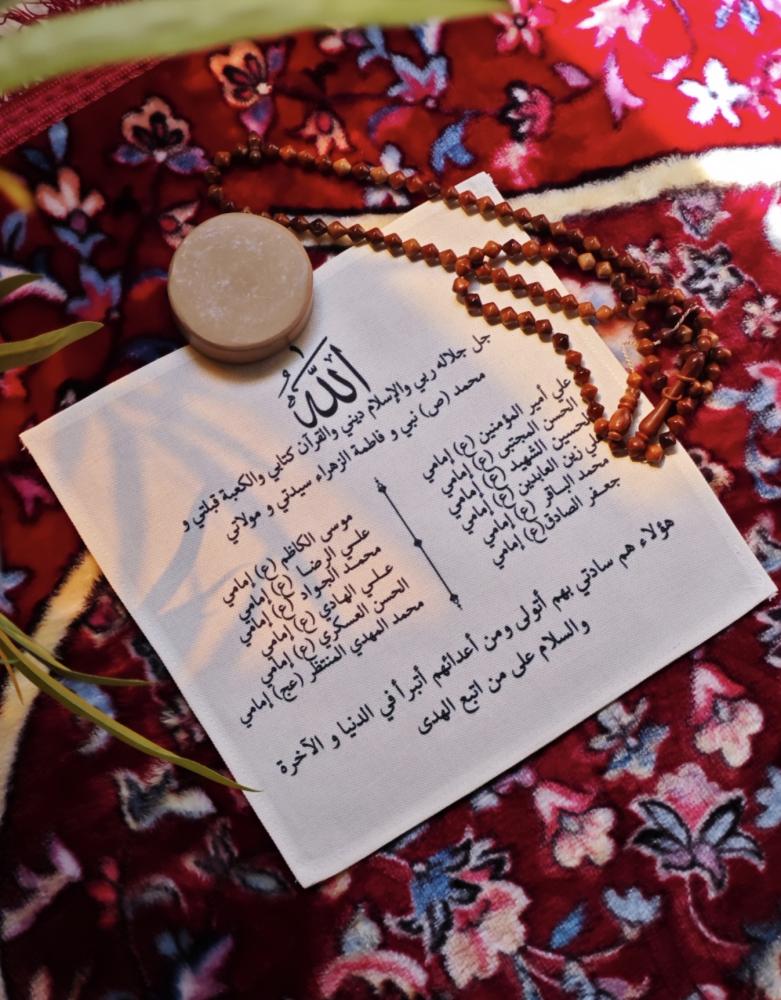 الله
جل جلاله ربي والإسلام ديني والقرآن كتابي والكعبة قبلتي و
محمد (ص) نبي و فاطمة الزهراء سيدتي و مولاتي
علي أمير المؤمنين (ع) إمامي
الحسن المجتبى (ع) إمامي
الحسين الشهيد (ع) إمامي
علي زين العابدين (ع) إمامي
محمد الباقر (ع) إمامي
جعفر الصادق (ع) إمامي
موسى الكاظم (ع) إمامي
علي الرضا (ع) إمامي
محمد الجواد (ع) إمامي
علي الهادي (ع) إمامي
الحسن العسكري (ع) إمامي
محمد المهدي المنتظر (عج) إمامي
هؤلاء هم سادتي بهم أتولى ومن أعدائهم أتبرأ في الدنيا و الآخرة
والسلام على من اتبع الهدى